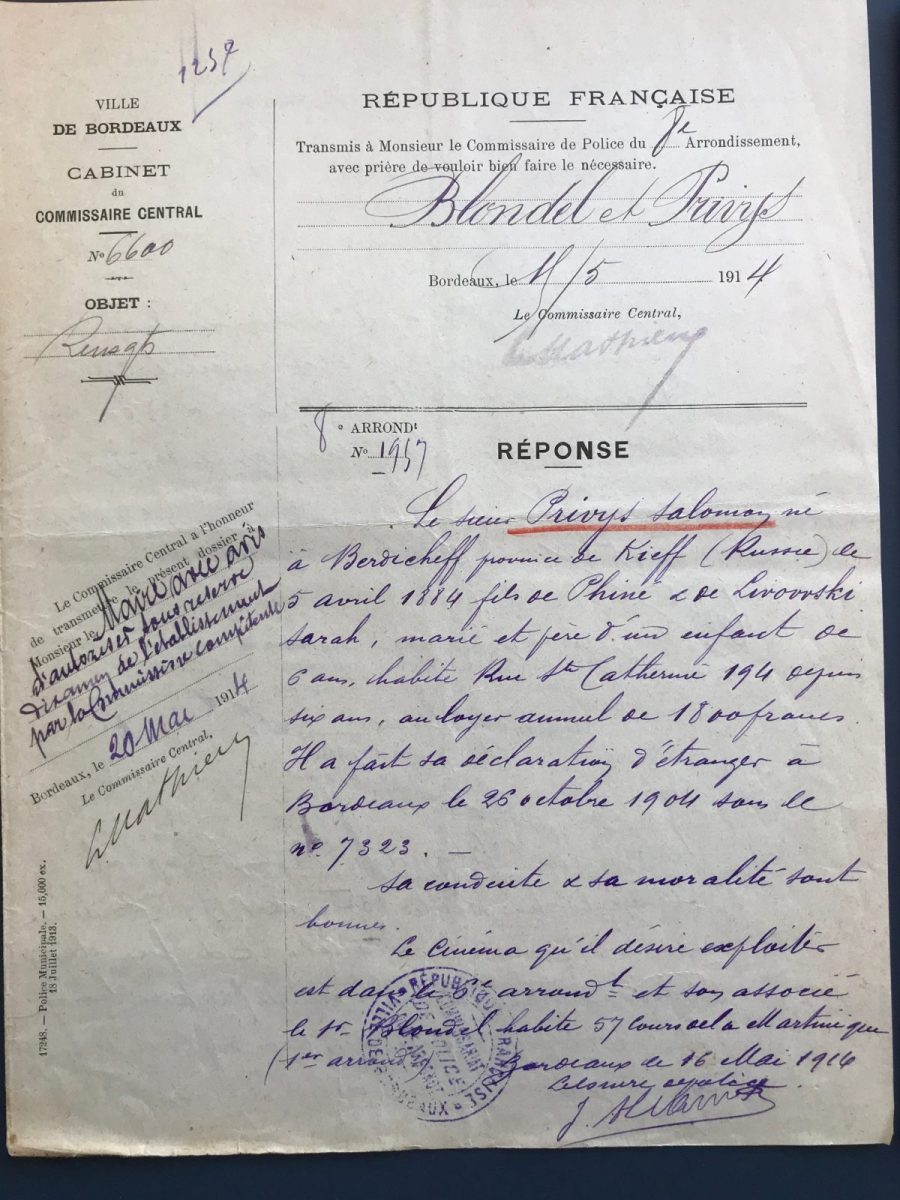 1257
VILLE
DE BORDEAUX
CABINET
du
COMMISSAIRE CENTRAL
No 6600
OBJET :
Rensgts
RÉPUBLIQUE FRANÇAISE
Transmis à Monsieur le Commissaire de Police du 8e Arrondissement,
avec prière de vouloir bien faire le nécessaire.
Blondel et Privys
Bordeaux, le /5 1914
Le Commissaire Central,
Mathieu
8e ARRONDt
No 1957
RÉPONSE
Le sieur Privys Salomon, né
à Berdicheff province de Kieff (Russie) le
5 avril 1884 fils de Phiné & de Livovski
Sarah, marié et père d'un enfant de
6 ans, habite Rue Ste Catherine 194 depuis
six ans, au loyer annuel de 1800 francs.
Il a fait sa déclaration d'étranger à
Bordeaux le 26 octobre 1904 sous le
no. 7323. —
Sa conduite & sa moralité sont
bonnes.
Le Cinéma qu'il désire exploiter
est dans le 6e arrondt et son associé
le sr Blondel habite 57 cours de la Martinique
(1er arrondt) Bordeaux le 16 Mai 1914
Le Commissaire Central a l'honneur
de transmettre le présent dossier à
Monsieur le Maire avec avis
d'autoriser sous réserve
d'examen de l'établissement
par la Commission compétente
Bordeaux, le 20 Mai 1914
Le Commissaire Central,
Mathieu
17248. — Police Municipale. — 15,000 ex.
18 Juillet 1913.
RÉPUBLIQUE FRANÇAISE
VILLE DE BORDEAUX
COMMISSARIAT
DE POLICE